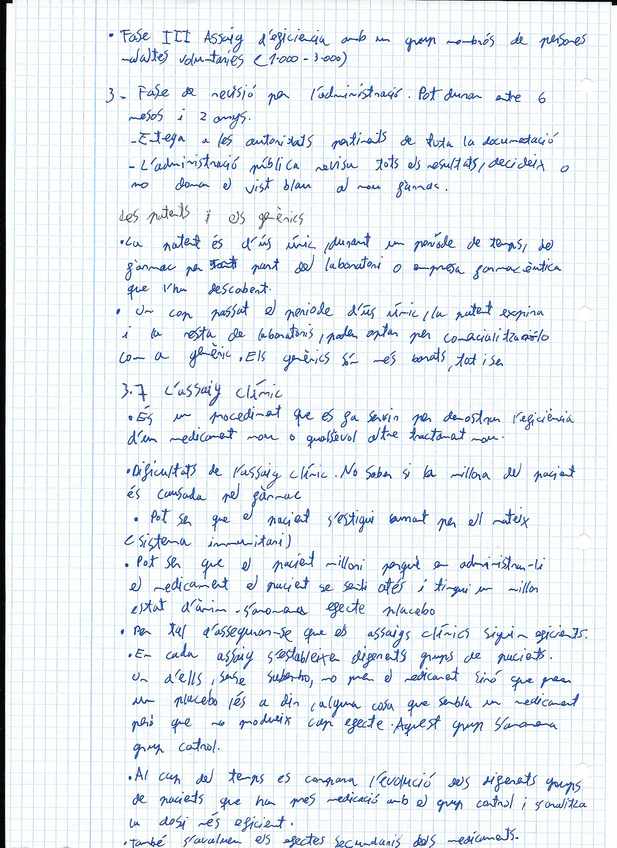 • Fase III Assaig d'eficiència amb un grup nombrós de persones
malaltes voluntaries (1.000 - 3.000)
3 - Fase de revisió per l'administració. Pot durar entre 6
mesos i 2 anys.
- Entega a les autoritats pertinents de tota la documentació
- L'administració pública revisa tots els resultats, decideix o
no donar el vist blau al nou fàrmac.
Les patents i els genèrics
• La patent és d'ús únic, durant un període de temps, del
fàrmac per part del laboratori o empresa farmacèutica
que l'ha descobert.
• Un cop passat el periode d'ús únic, la patent expira
i la resta de laboratoris, poden optar per comercialitzar-lo
com a genèric. Els genèrics són més barats, tot i ser
3.7 L'assaig clínic
• És un procediment que es fa servir per demostrar l'eficiència
d'un medicament nou o qualsevol altre tractament nou.
• Dificultats de l'assaig clínic. No saber si la millora del pacient
és causada pel fàrmac
• Pot ser que el pacient s'estigui curant per ell mateix
(sistema immunitari)
• Pot ser que el pacient millori perquè en administrar-li
el medicament el pacient se senti atés i tingui un millor
estat d'ànim - s'anomena efecte placebo
• Per tal d'assegurar-se que els assaigs clínics siguin eficients.
• En cada assaig s'estableixen diferents grups de pacients.
Un d'ells, sense saber-ho, no pren el medicament sinó que pren
un placebo, és a dir, alguna cosa que sembla un medicament
però que no produeix cap efecte. Aquest grup s'anomena
grup control.
• Al cap del temps es compara l'evolució dels diferents grups
de pacients que han pres medicació amb el grup control i s'analitza
la dosi més eficient.
• També s'avaluen els efectes secundaris dels medicaments.